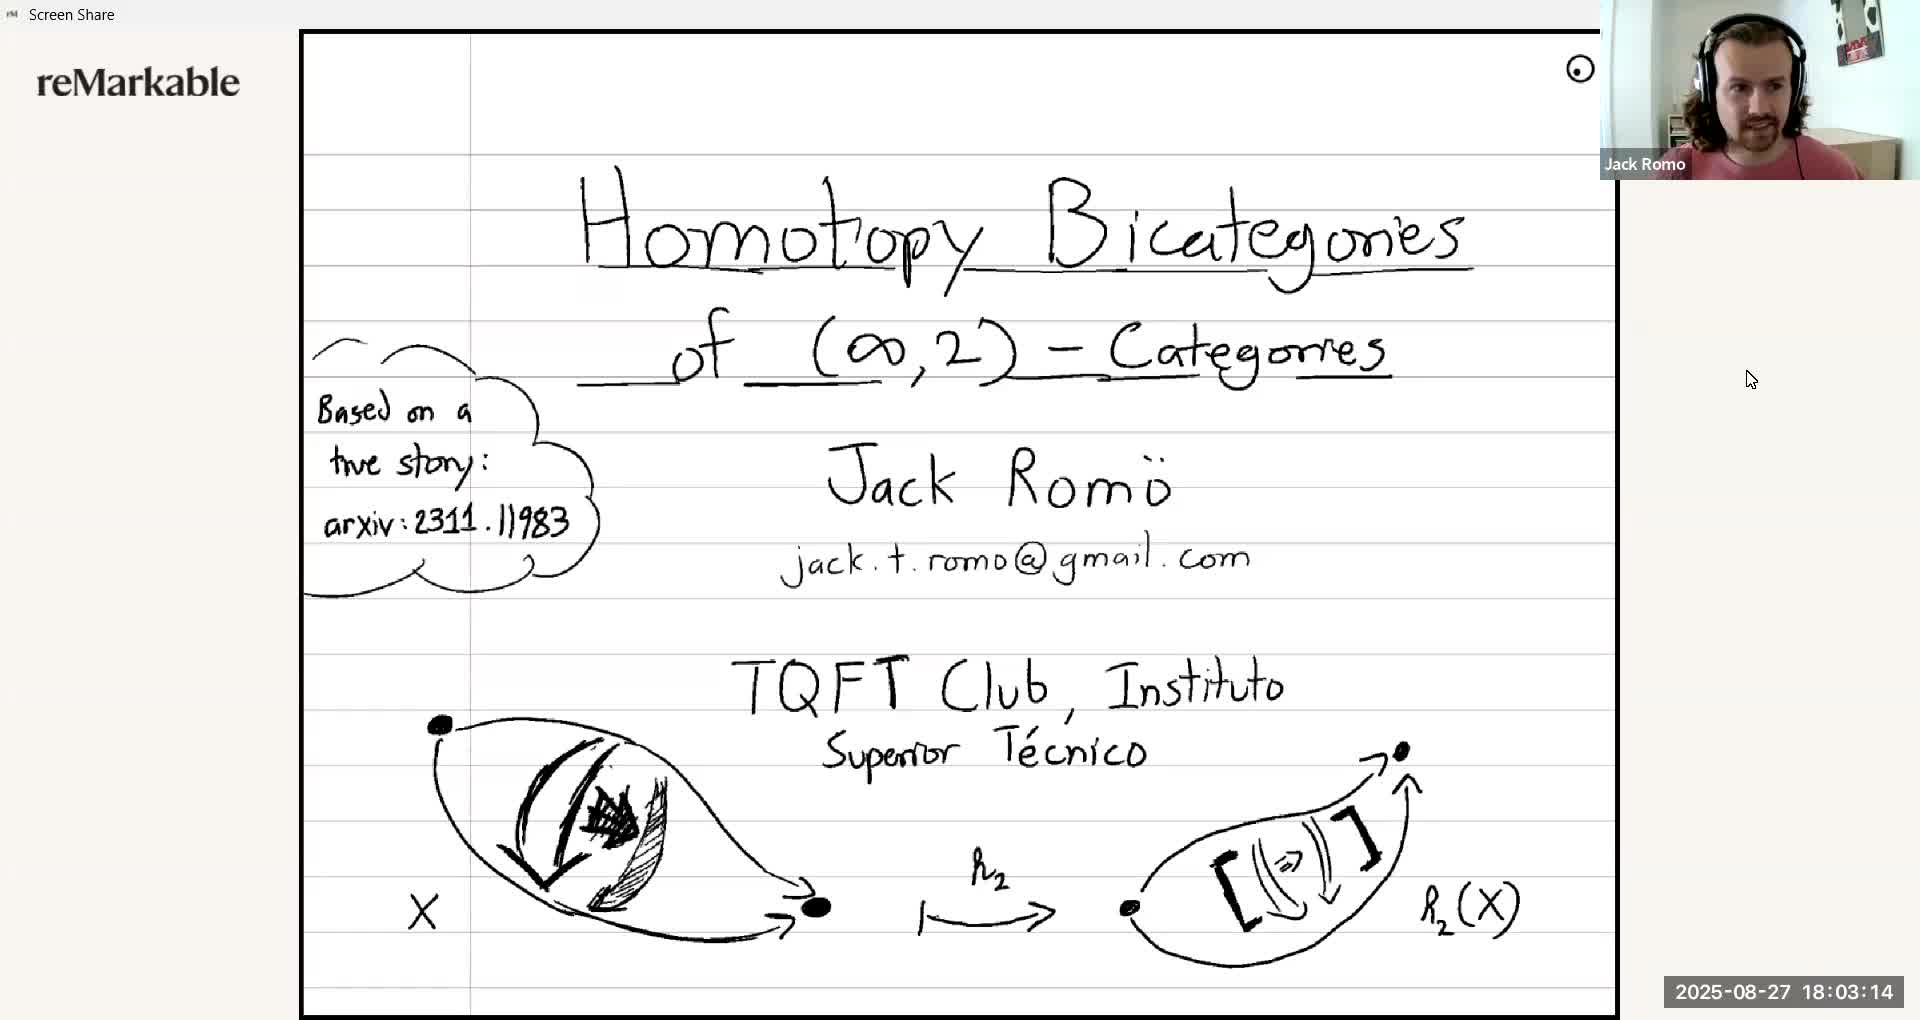 Screen Share
reMarkable
Jack Romo
Homotopy Bicategories
of (∞,2)-Categories
Based on a
true story:
arxiv:2311.11983
Jack Romö
jack.t.romo@gmail.com
TQFT Club, Instituto
Superior Técnico
X
h₂
h₂(X)
2025-08-27 18:03:14